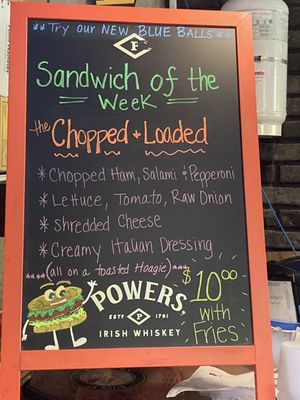 ** Try our NEW BLUE BALLS **
P
Sandwich of the
Week
the Chopped + Loaded
* Chopped Ham, Salami + Pepperoni
* Lettuce, Tomato, Raw Onion
* Shredded Cheese
* Creamy Italian Dressing
**** (all on a toasted Hoagie) ****
POWERS
ESTD P 1791
IRISH WHISKEY
$10.00
with
Fries